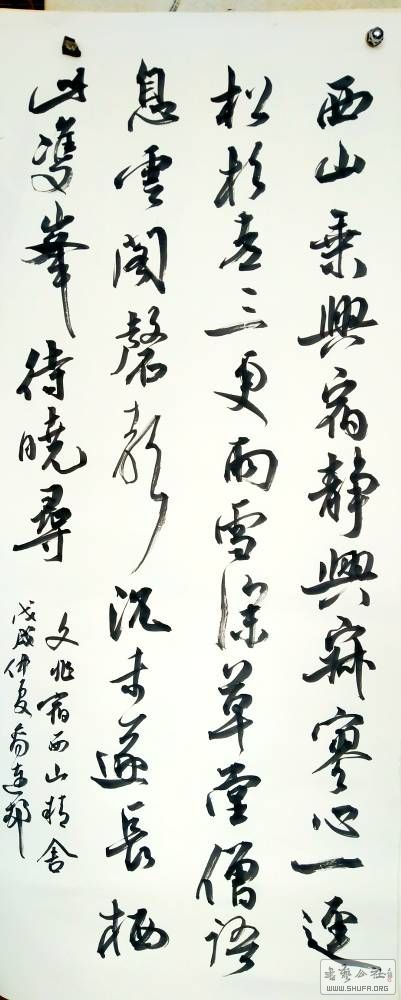 西山乘興宿靜興寂寥心一逕
松杉老三更雨雪深草堂僧語
息雲閣磬聲沉未遂長栖
此雙峯待曉尋
文兆宿西山精舍
戊戌仲夏喬連
书艺公社
WWW.SHUFA.ORG